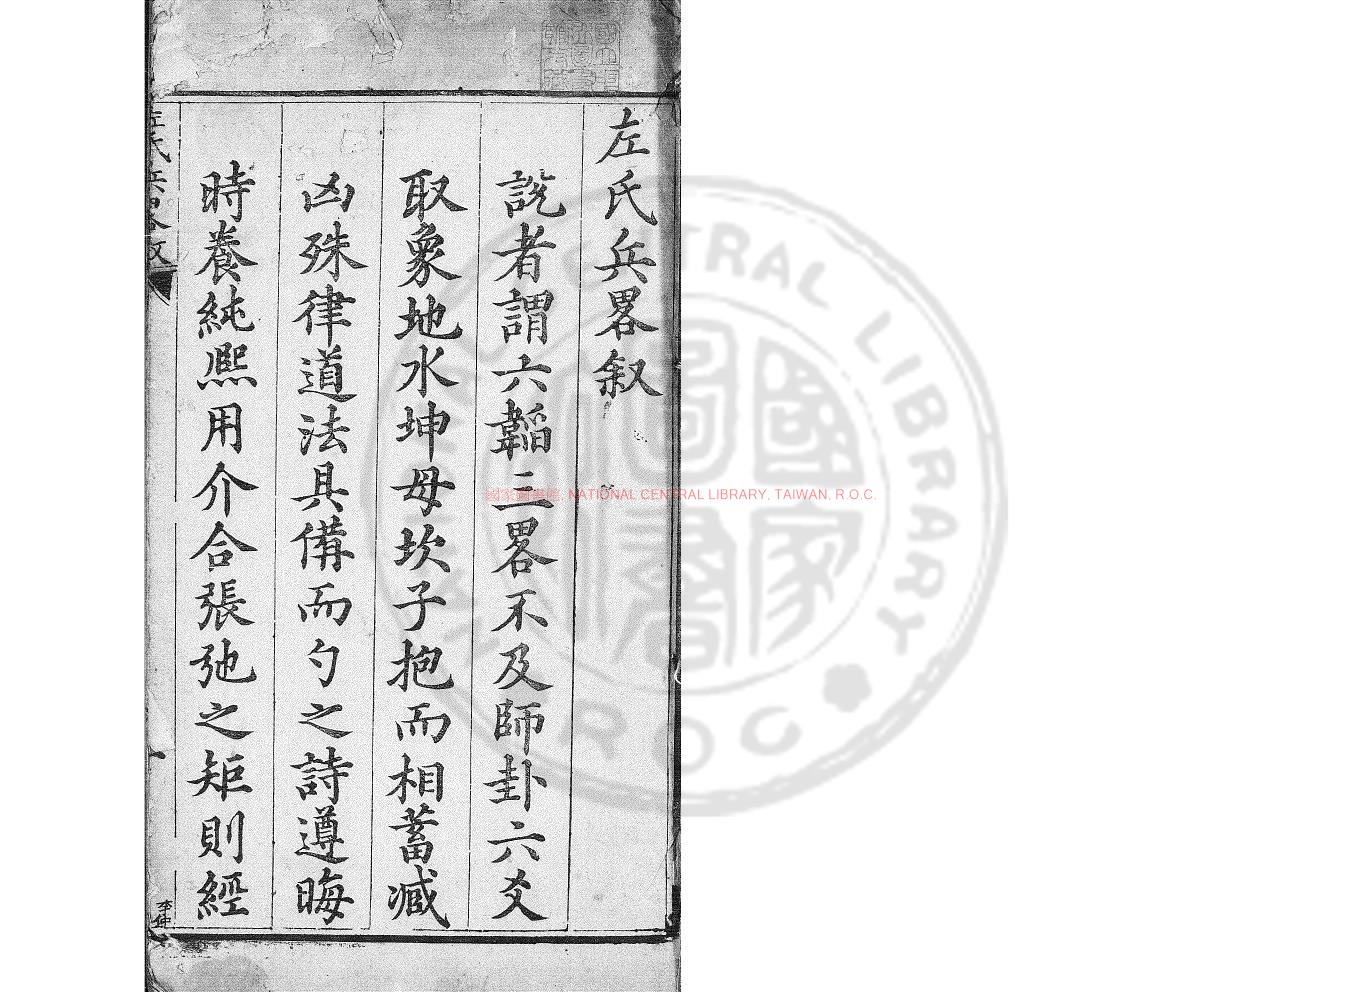 左氏兵畧叙
說者謂六韜三畧不及師卦六爻
取象地水坤母坎子抱而相蓄臧
凶殊律道法具備而勺之詩遵晦
時養純熈用介合張弛之矩則經
左氏兵畧叙
一
李仲
國家圖書館, NATIONAL CENTRAL LIBRARY, TAIWAN, R.O.C.